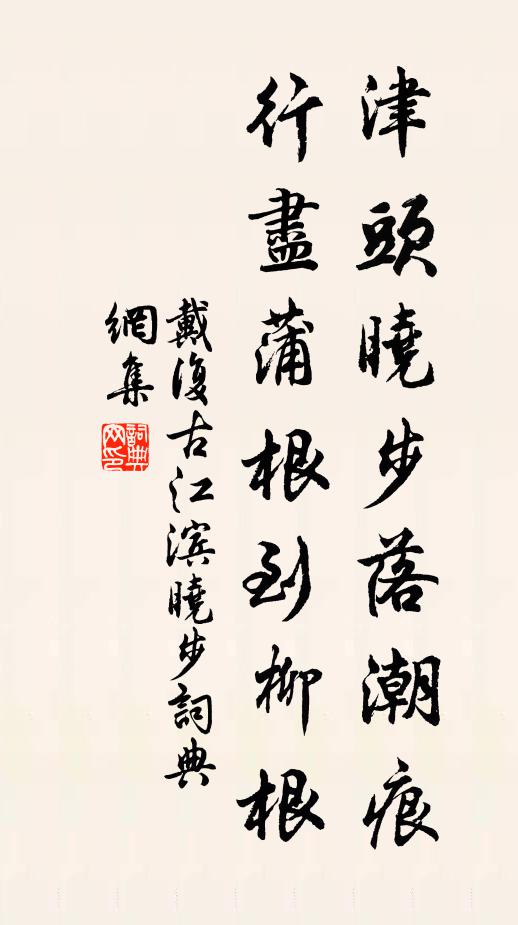 津頭曉步落潮痕
行盡蒲根到柳根
戴復古江滨曉步詞典
網集
詞典網印